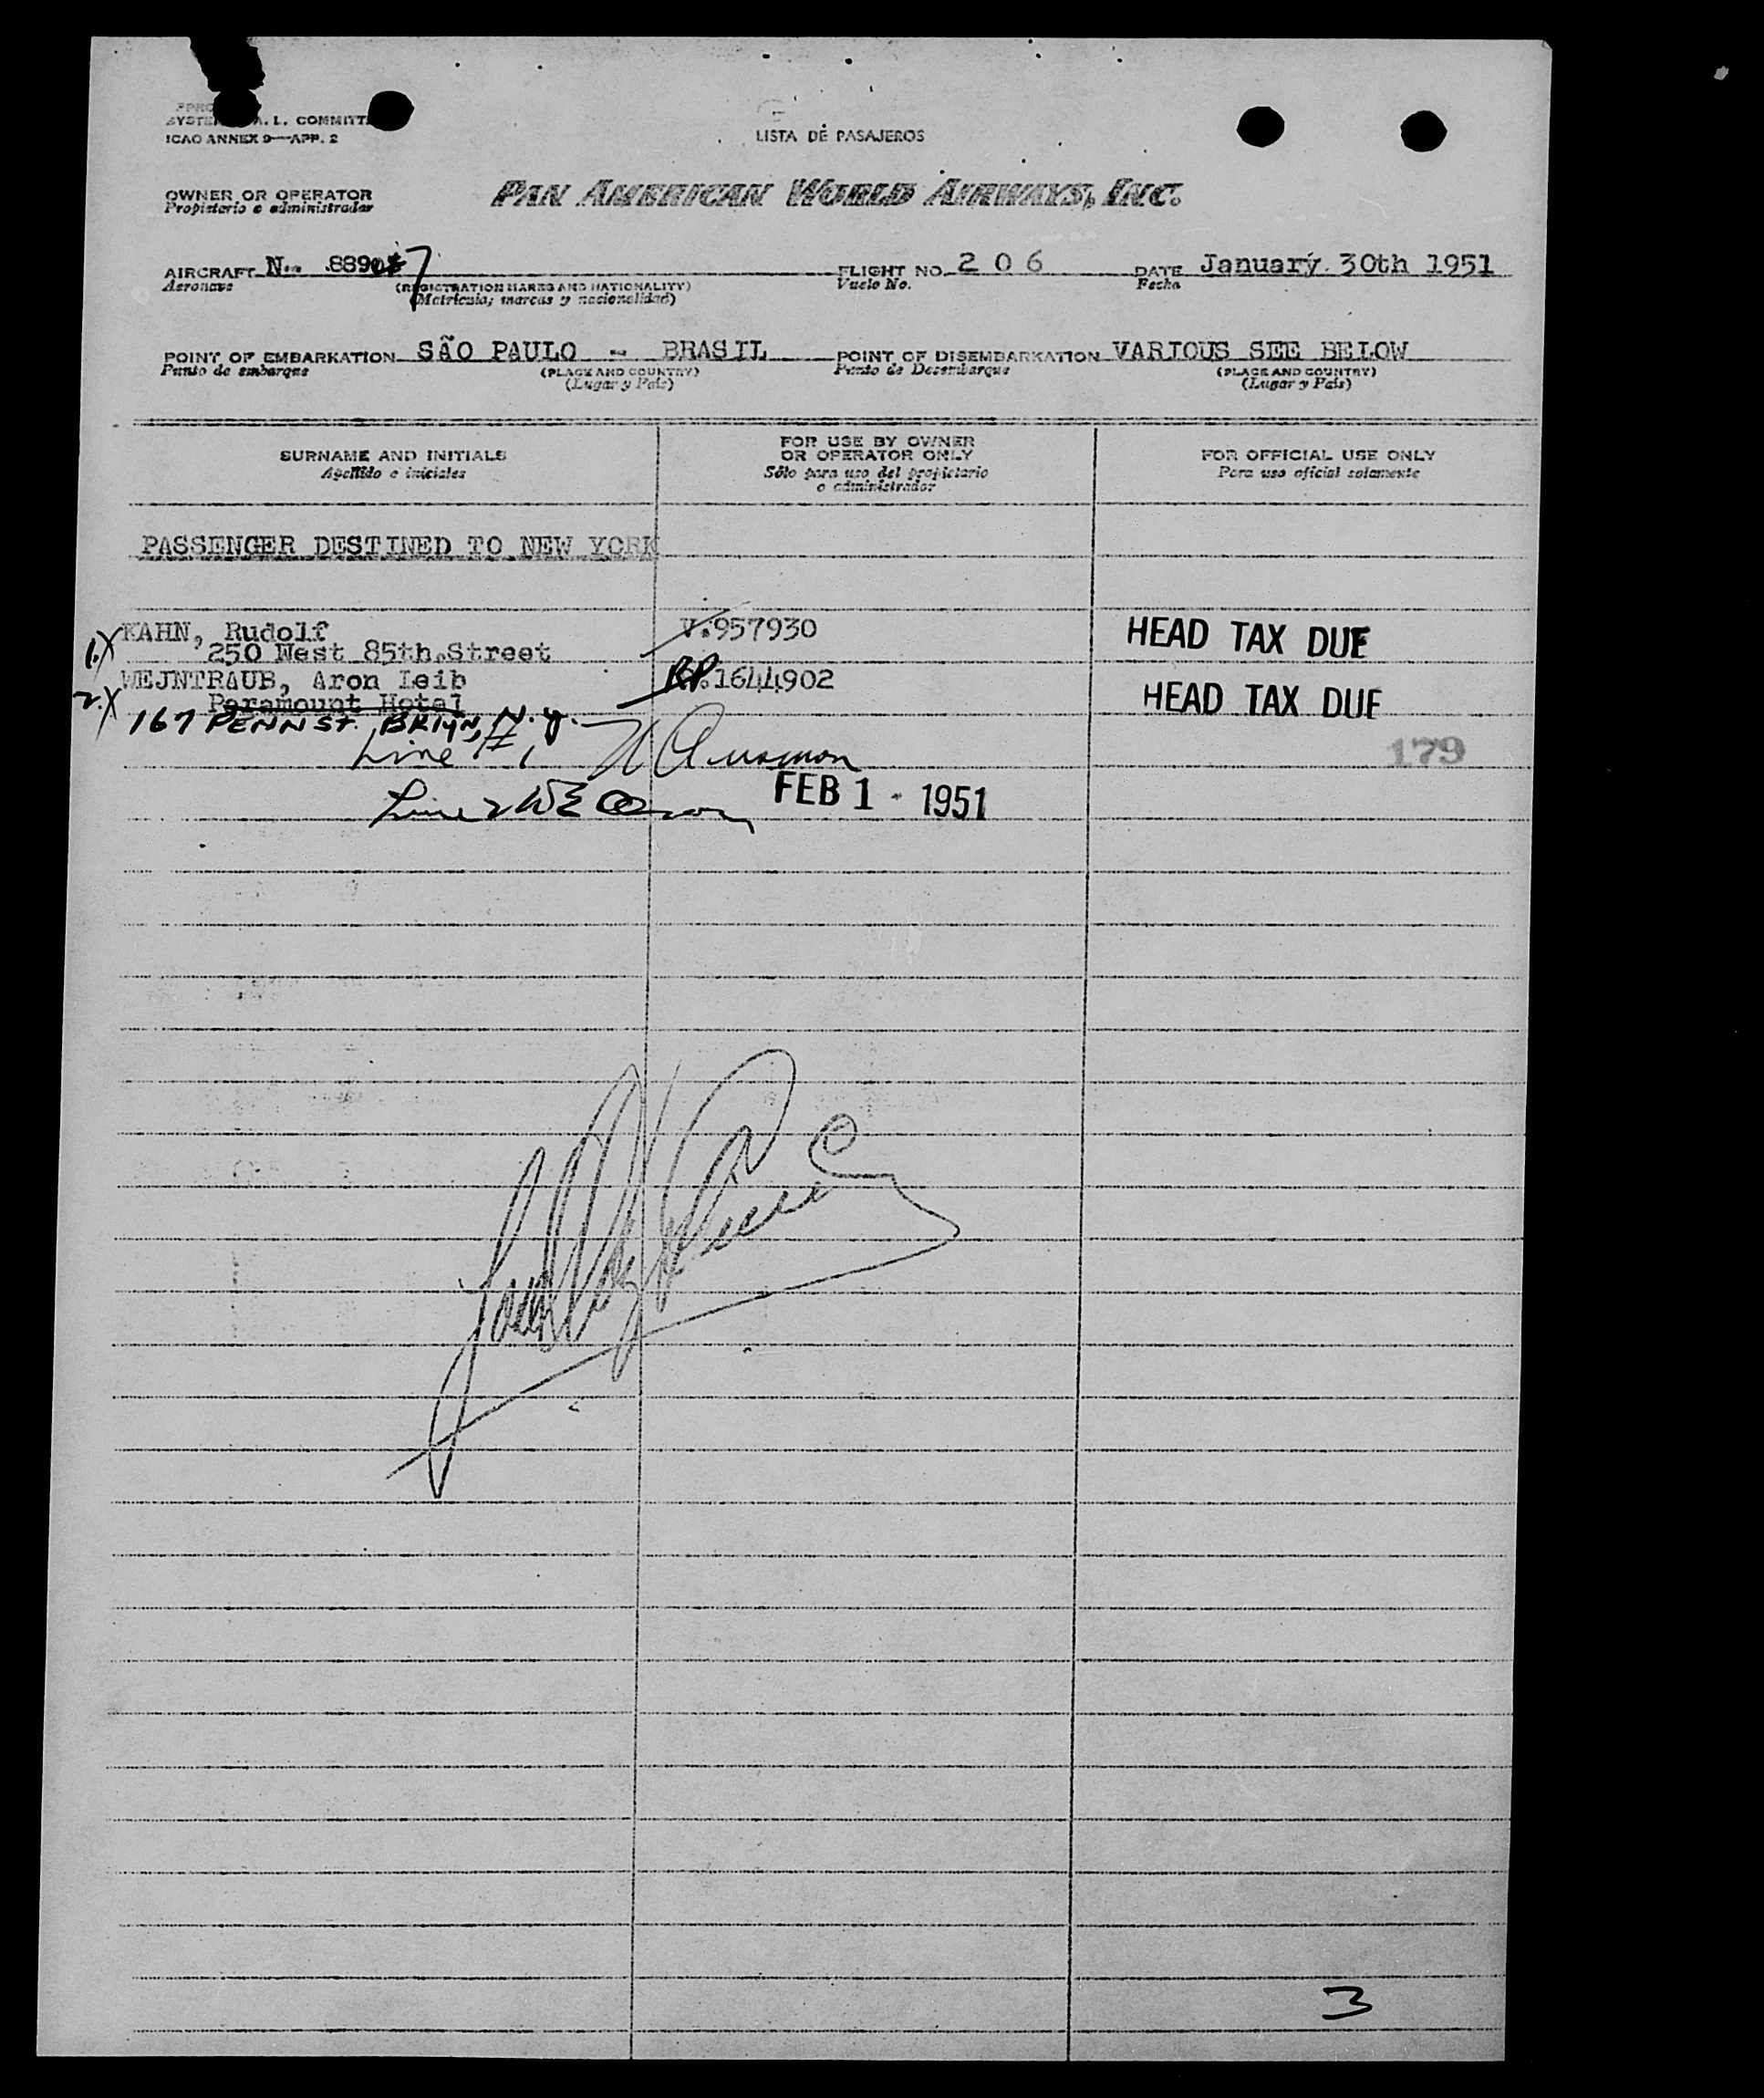 A. L. COMMITT
ICAO ANNEX 9—APP. 2
LISTA DE PASAJEROS
OWNER OR OPERATOR
Propietario o administrador
PAN AMERICAN WORLD AIRWAYS, INC.
AIRCRAFT N.. 8890 7
Aeronave
(REGISTRATION MARKS AND NATIONALITY)
(Matrícula, marcas y nacionalidad)
FLIGHT NO. 2 0 6
Vuelo No.
DATE January 30th 1951
Fecha
POINT OF EMBARKATION SÃO PAULO - BRASIL
Punto de embarque
(PLACE AND COUNTRY)
(Lugar y País)
POINT OF DISEMBARKATION VARIOUS SEE BELOW
Punto de Desembarque
(PLACE AND COUNTRY)
(Lugar y País)
SURNAME AND INITIALS
Apellido e iniciales
FOR USE BY OWNER
OR OPERATOR ONLY
Sólo para uso del propietario
o administrador
FOR OFFICIAL USE ONLY
Para uso oficial solamente
PASSENGER DESTINED TO NEW YORK
1. X KAHN, Rudolf V.957930 HEAD TAX DUE
250 West 85th.Street
2. X WEJNTRAUB, Aron Leib RP.1644902 HEAD TAX DUE
Paramount Hotel
167 PENN ST. BKLYN, N.Y.
Line # 1
179
Line 2
FEB 1 - 1951
3